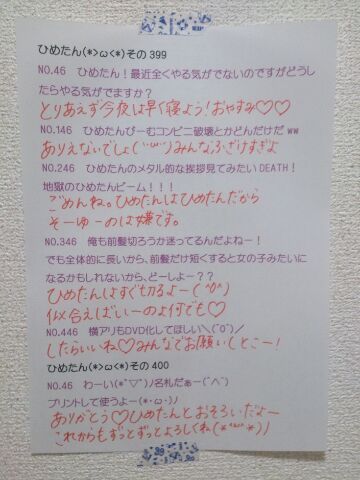 ひめたん(*>ω<*)その399
NO.46 ひめたん！最近全くやる気がでないのですがどうし
たらやる気がでますか？
とりあえず今夜は早く寝よう！おやすみ♡♡
NO.146 ひめたんびーむコンビニ破壊とかどんだけだww
ありえないでしょ(´･ω･`)みんなふざけすぎよ
NO.246 ひめたんのメタル的な挨拶見てみたいDEATH！
地獄のひめたんビーム！！！
ごめんね。ひめたんはひめたんだから
そーゆーのは嫌です。
NO.346 俺も前髪切ろうか迷ってるんだよねー！
でも全体的に長いから、前髪だけ短くすると女の子みたいに
なるかもしれないから、どーしよー？？
ひめたんはすぐ切るよー(^0^)
似合えばいーのよ何でも♡
NO.446 横アリもDVD化してほしい＼(^o^)／
したらいいね♡みんなでお願いしとこー！
ひめたん(*>ω<*)その400
NO.46 わーい(*ﾟ▽ﾟ)ﾉ名札だぁー(^∧^)
プリントして使うよー(*･ω･)ﾉ
ありがとう♡ひめたんとおそろいだよー
これからもずっとずっとよろしくね(*^ω^*)ノ
399